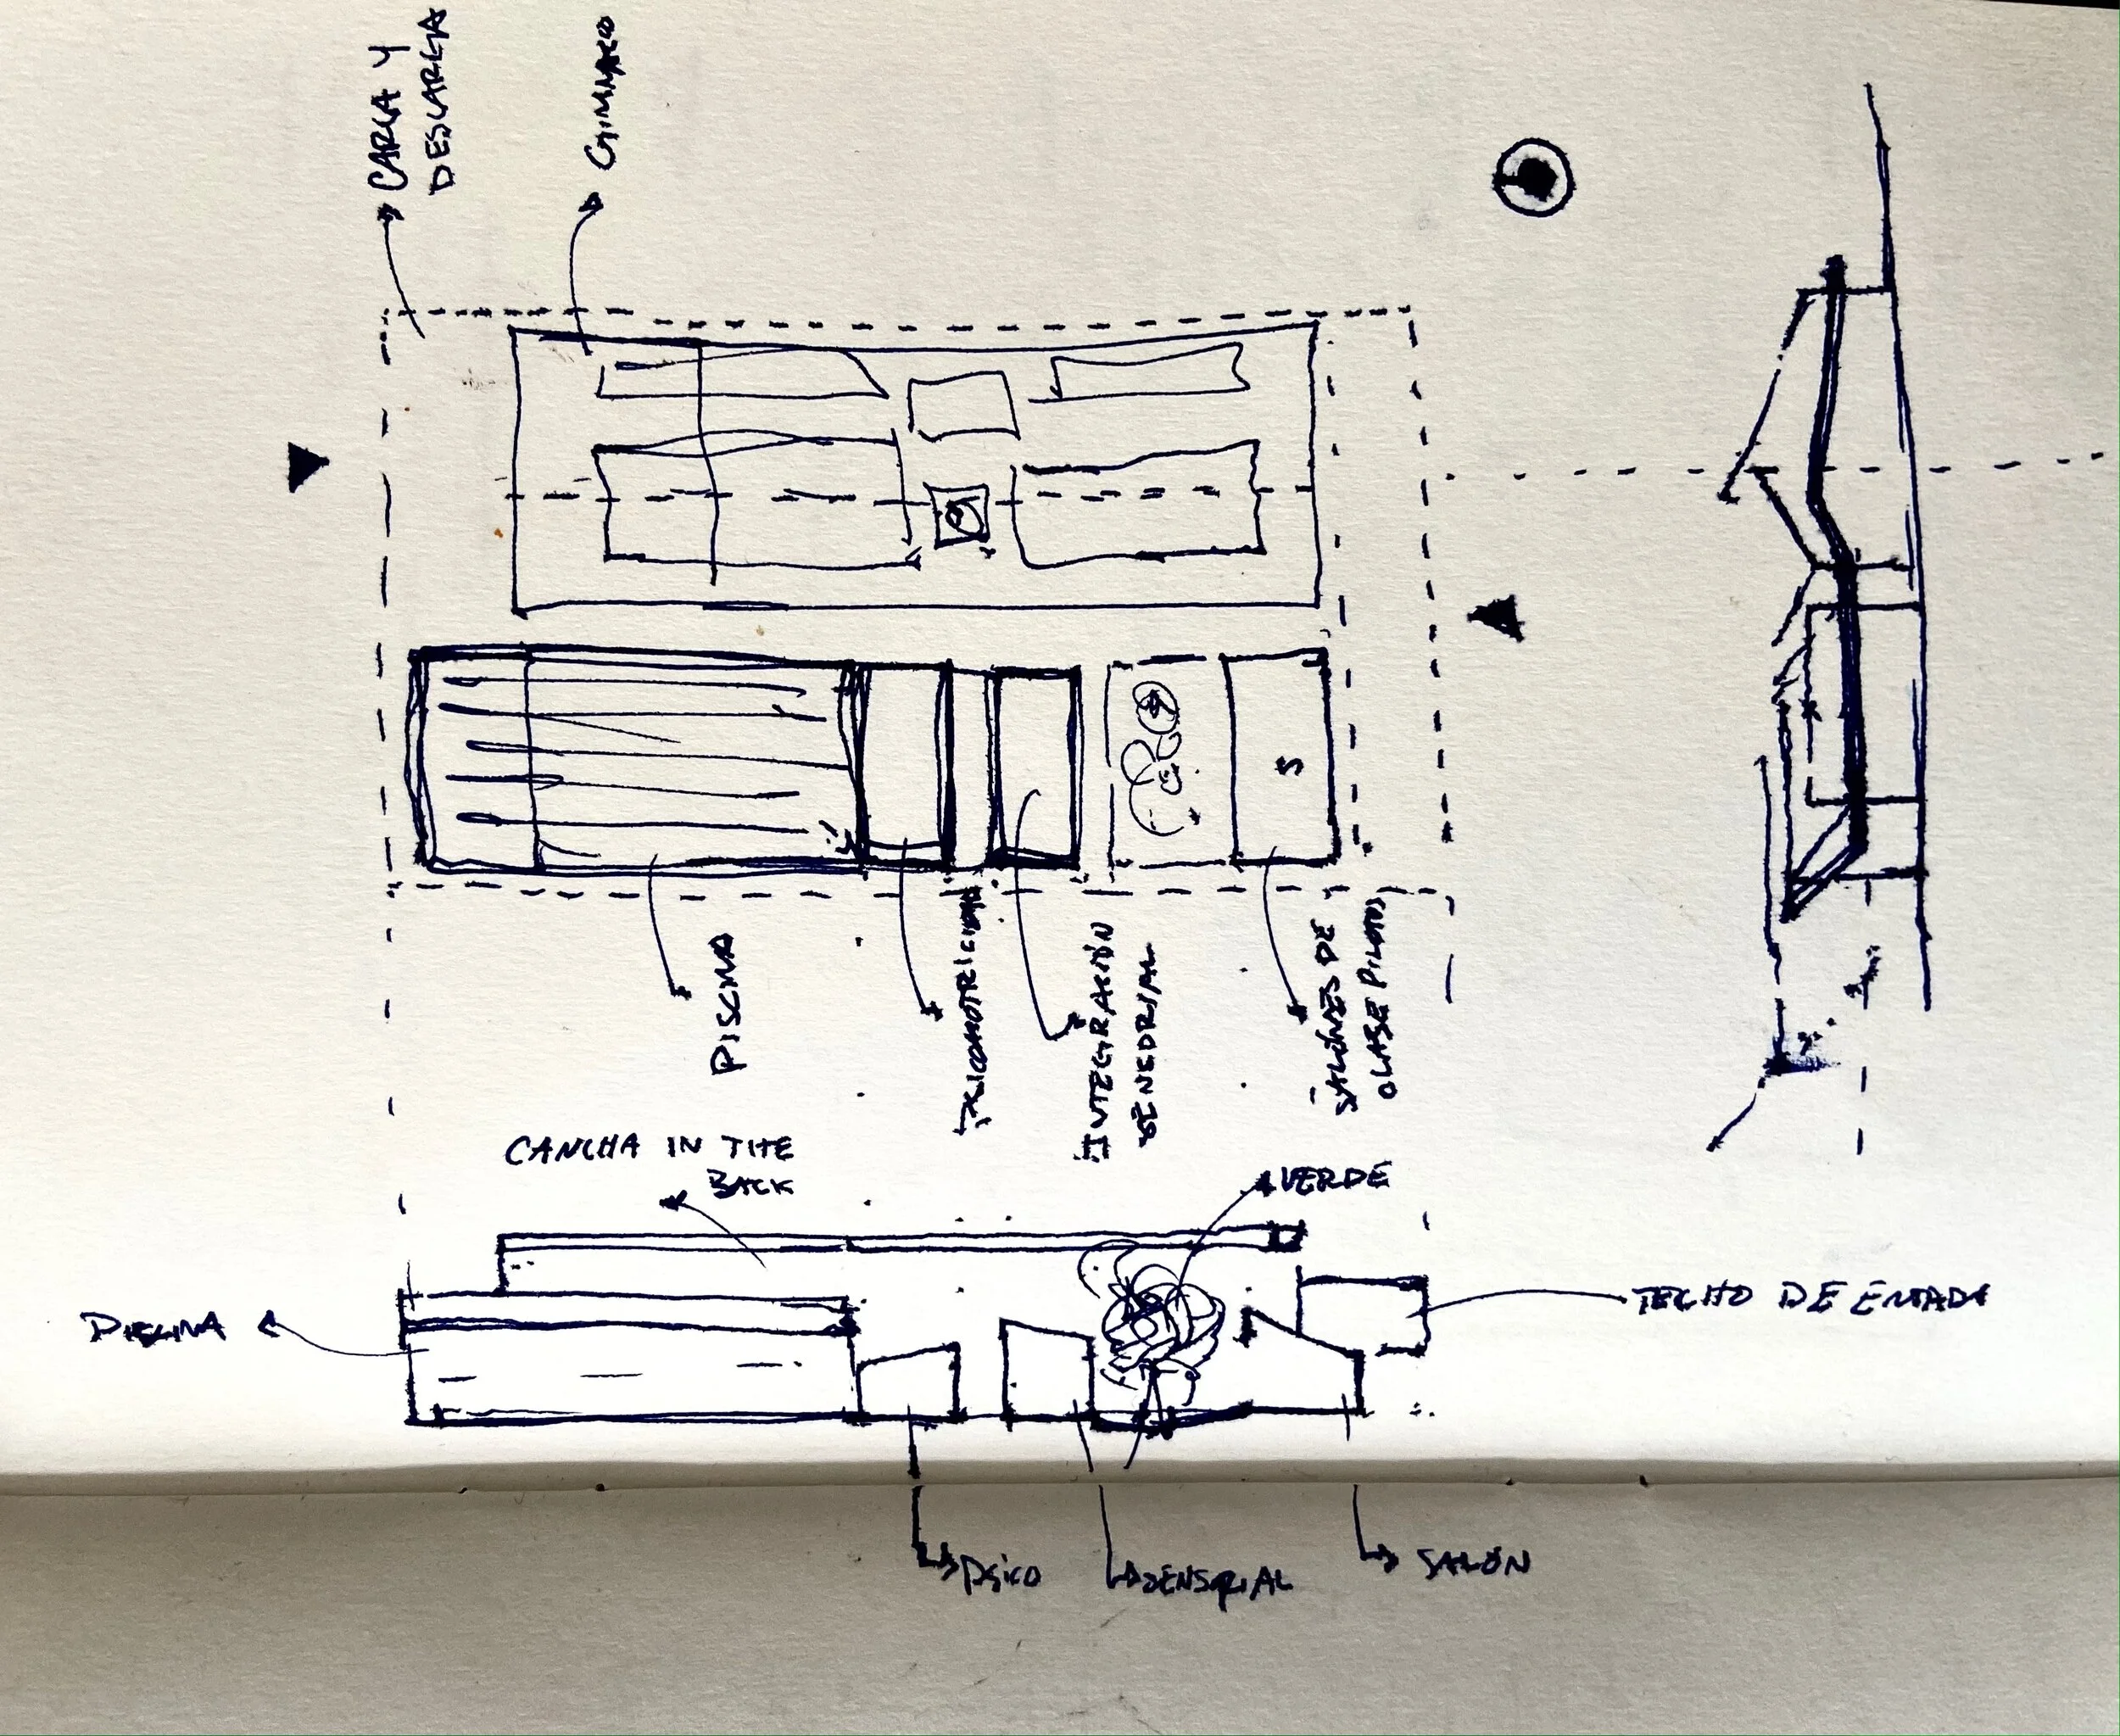 CARGA Y
DESCARGA
GIMNASIO
S
PISCINA
PSICOMOTRICIDAD
INTEGRACIÓN
SENSORIAL
SALONES DE
CLASE PILOTOS
CANCHA IN THE
BACK
VERDE
PISCINA
TECHO DE ENTADA
PSICO
SENSORIAL
SALÓN